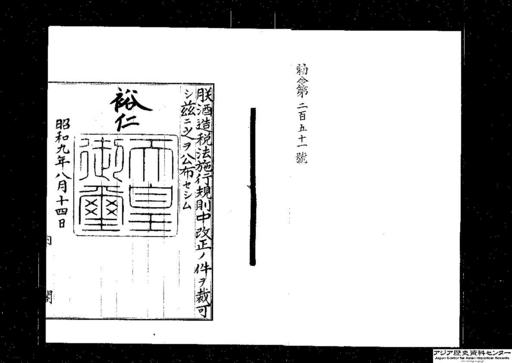 勅令第二百五十一號
朕酒造税法施行規則中改正ノ件ヲ裁可
シ茲ニ之ヲ公布セシム
裕仁
天皇
御璽
昭和九年八月十四日
内
閣
アジア歴史資料センター
Japan Center for Asian Historical Records